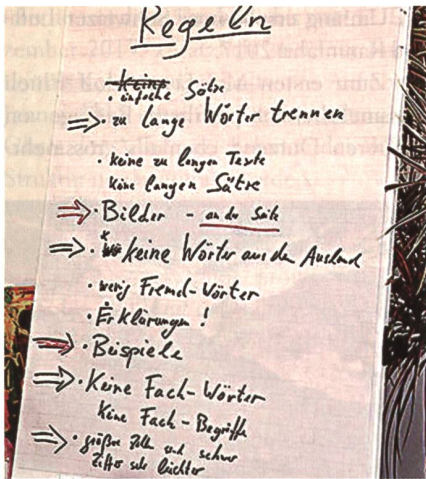 Regeln
keine
· einfache Sätze
⇒ · zu lange Wörter trennen
· keine zu langen Texte
keine langen Sätze
⇒ · Bilder - an der Seite
⇒ · keine Wörter aus dem Ausland
· wenig Fremd-Wörter
· Erklärungen!
⇒ · Beispiele
⇒ · Keine Fach-Wörter
Keine Fach-Begriffe
⇒ · große und schwer
sehr leichter